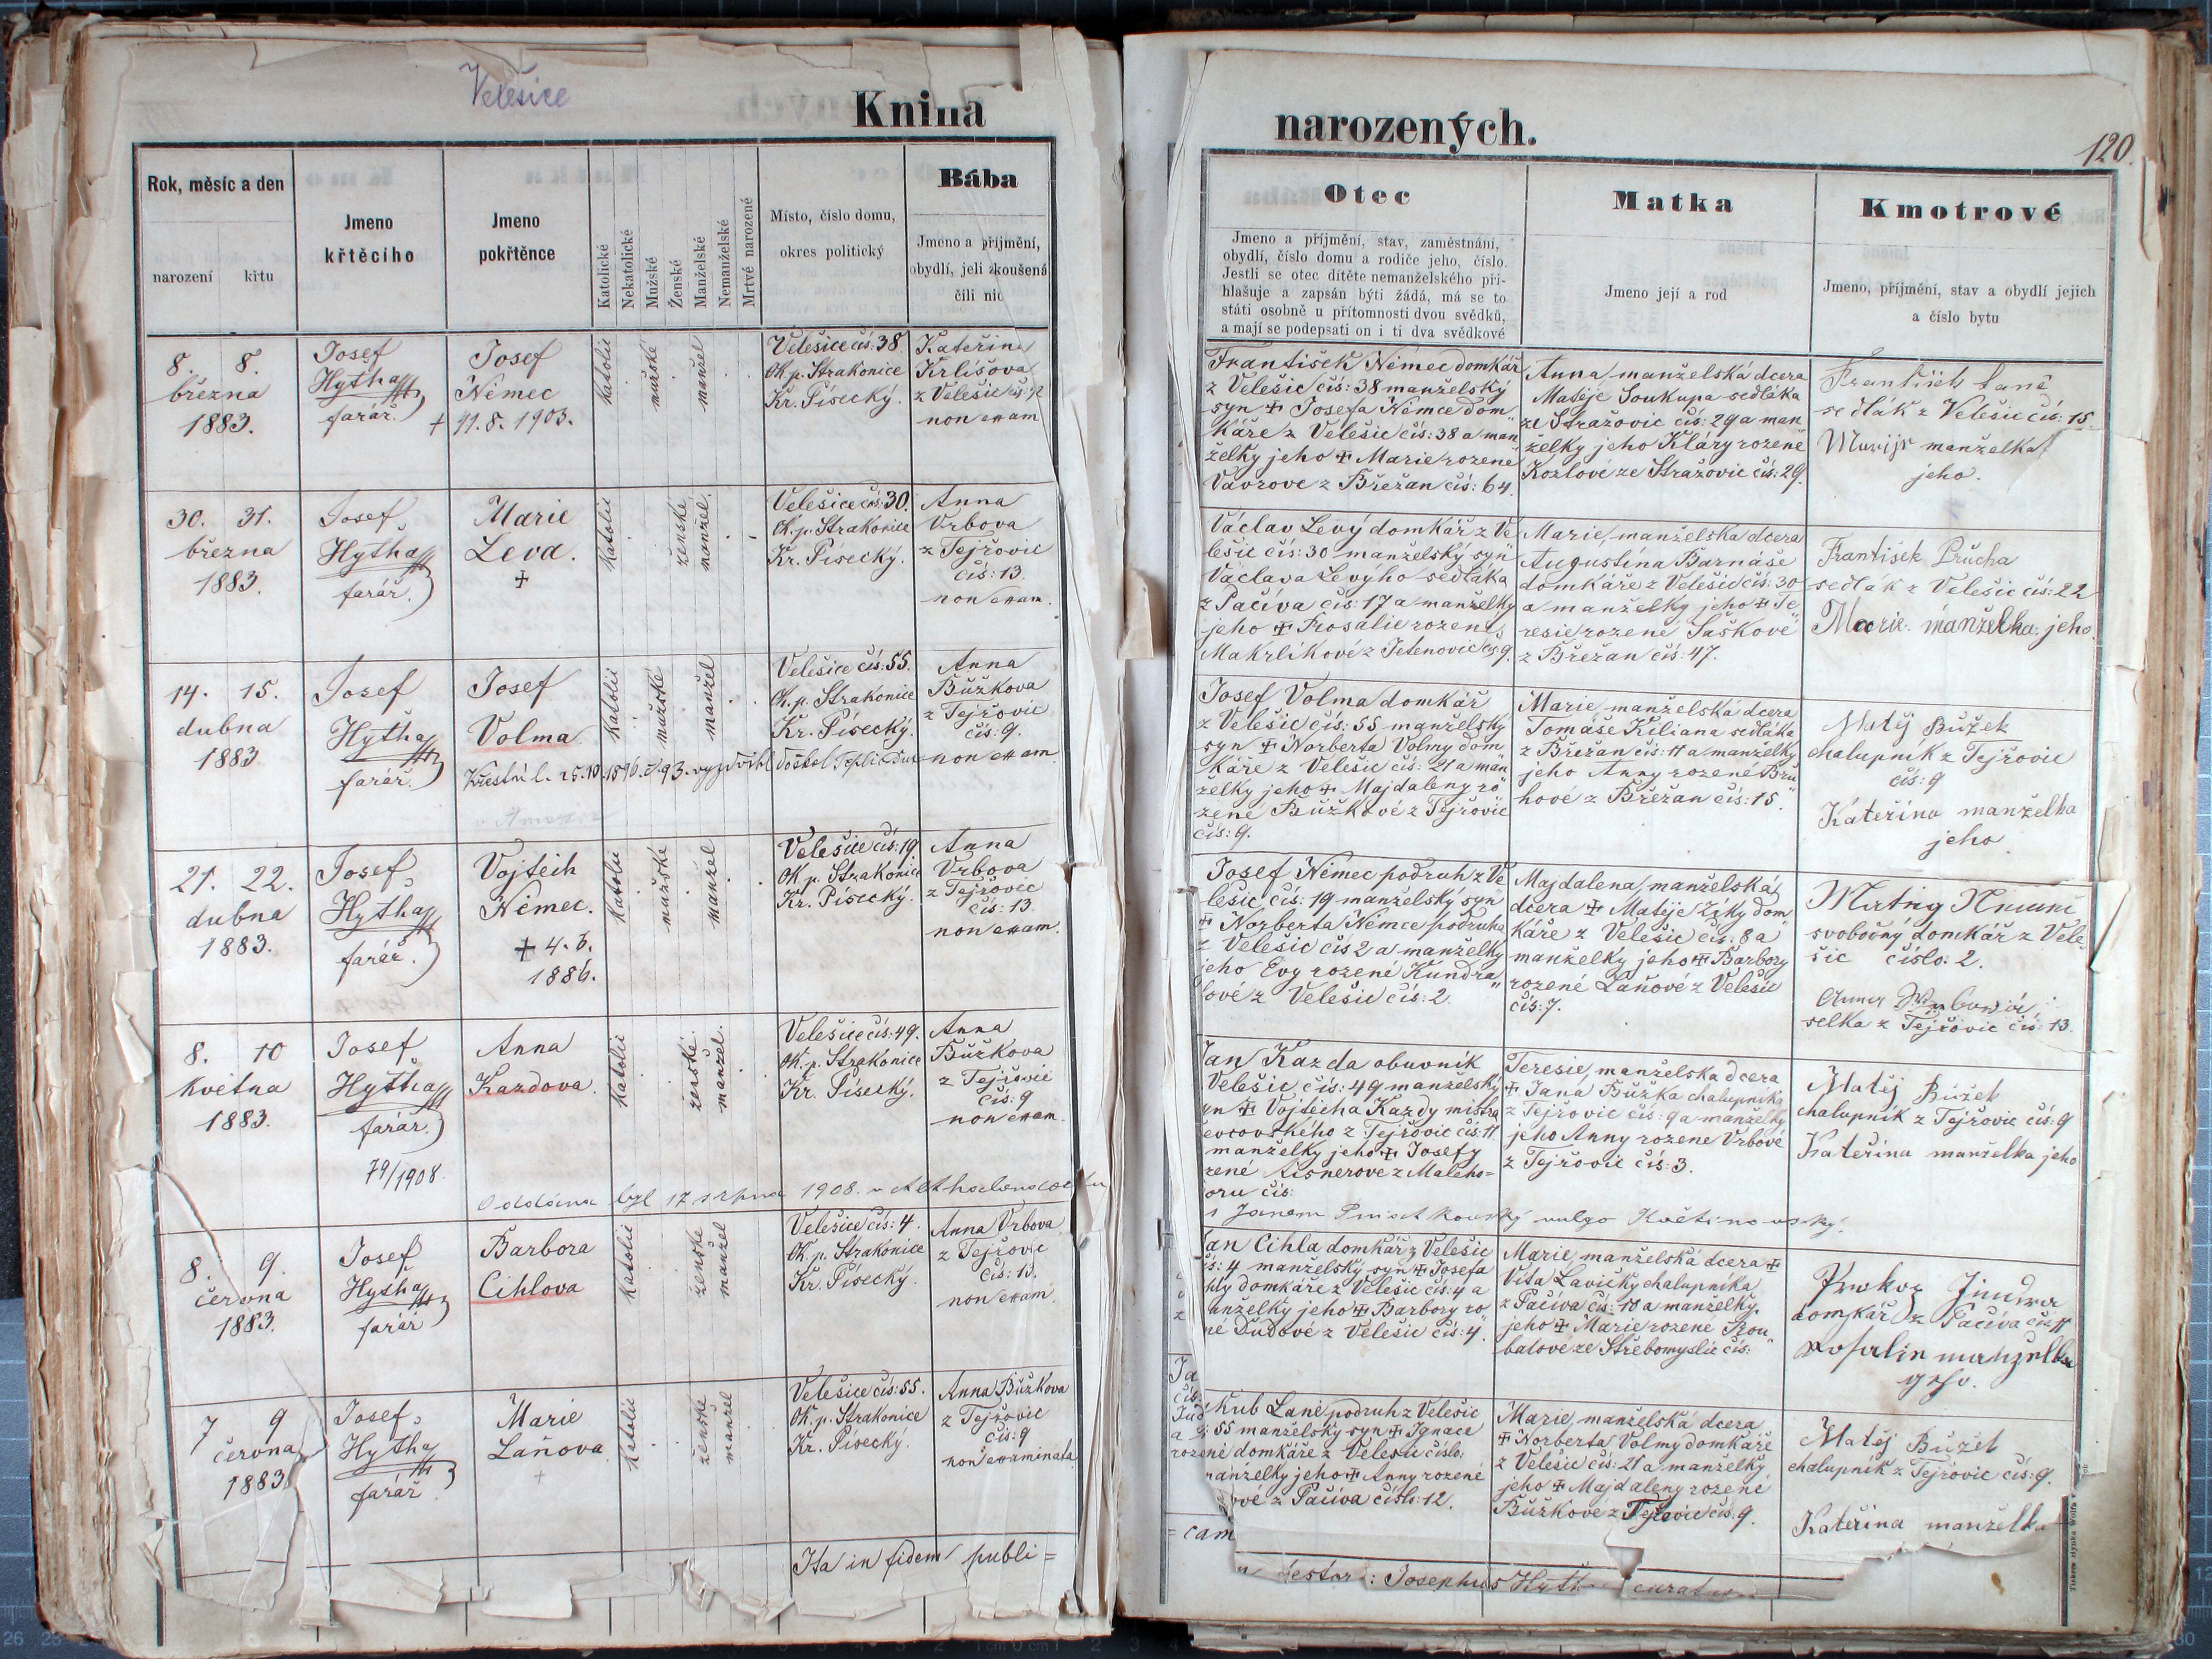 Velešice
Kniha
narozených.
120.
Rok, měsíc a den
narození
křtu
Jmeno
křtěcího
Jmeno
pokřtěnce
Katolické
Nekatolické
Mužské
Ženské
Manželské
Nemanželské
Mrtvé narozené
Místo, číslo domu,
okres politický
Bába
Jmeno a příjmění,
obydlí, jeli zkoušená
čili nic
Otec
Jmeno a příjmění, stav, zaměstnání,
obydlí, číslo domu a rodiče jeho, číslo.
Jestli se otec dítěte nemanželského při-
hlašuje a zapsán býti žádá, má se to
státi osobně u přítomnosti dvou svědků,
a mají se podepsati on i ti dva svědkové
Matka
Jmeno její a rod
Kmotrové
Jmeno, příjmění, stav a obydlí jejich
a číslo bytu
8. 8.
března
1883.
Josef
Hytha
farář.
Josef
Němec
+ 11.8.1903.
Katolic
mužské
manžel
Velešice čís: 38.
Ok. p. Strakonice
Kr. Písecký.
Kateřina
Krlišova
z Velešic
non exam
František Němec domkář
z Velešic čís: 38 manželský
syn + Josefa Němce dom
káře z Velešic čís: 38 a man
želky jeho + Marie rozené
Vávrove z Břežan čís: 64.
Anna manželská dcera
Matěje Soukupa sedláka
ze Stražovic čís: 29 a man
želky jeho Kláry rozené
Kozlové ze Stražovic čís: 29.
František Laně
sedlák z Velešic čís: 15.
Marije manželka
jeho.
30. 31.
března
1883.
Josef
Hytha
farář.
Marie
Leva.
+
Katolic
ženské
manžel.
Velešice čís: 30.
Ok. p. Strakonice
Kr. Písecký.
Anna
Vrbova
z Tejřovic
čís: 13.
non exam.
Václav Levý domkář z Ve
lešic čís: 30 manželský syn
Václava Levýho sedláka
z Pačiva čís: 17 a manželky
jeho + Rosalie rozené
Makrlíkové z Jetenovic čs 9.
Marie, manželska dcera
Augustína Barnáše
domkáře z Velešic čís: 30
a manželky jeho + Te
resie rozené Saškové
z Břežan čís: 47.
František Průcha
sedlák z Velešic čís: 22
Marie manželka jeho.
14. 15.
dubna
1883
Josef
Hytha
farář.
Josef
Volma
Křestní l. 25.10.1896. č. 93.
Katolic
mužské
manžel
Velešice čís: 55.
Ok. p. Strakonice
Kr. Písecký.
Anna
Bůžkova
z Tejřovic
čís: 9.
non exam
Josef Volma domkář
z Velešic čís: 55 manželsky
syn + Norberta Volmy dom
káře z Velešic čís: 21 a man
želky jeho + Majdaleny ro
zené Bůžkové z Tejřovic
čís: 9.
Marie, manželská dcera
Tomáše Kiliana sedláka
z Břežan čís: 11 a manželky
jeho Anny rozené Brů
hové z Břežan čís: 15.
Matěj Bůžek
chalupník z Tejřovic
čís: 9
Kateřina manželka
jeho
21. 22.
dubna
1883.
Josef
Hytha
farář.
Vojtěch
Němec.
+ 4.6.
1886.
Katolic
mužské
manžel
Velešice čís: 19.
Ok p. Strakonice
Kr. Písecký.
Anna
Vrbova
z Tejřovic
čís: 13
non exam.
Josef Němec podruh z Ve
lešic čís: 19 manželský syn
+ Norberta Němce podruha
z Velešic čís 2 a manželky
jeho Evy rozené Kundra
tové z Velešic čís: 2.
Majdalena, manželská
dcera + Matěje Zíky dom
káře z Velešic čís: 8 a
manželky jeho + Barbory
rozené Laňové z Velešic
čís: 7.
svobodný domkář z Vele
šic číslo: 2.
z Tejřovic čís: 13.
8. 10
května
1883.
Josef
Hytha
farář.
79/1908.
Anna
Kazdova.
Katolic
ženské.
manžel.
Velešice čís: 49.
Ok. p. Strakonice
Kr. Písecký.
Anna
Bůžkova
z Tejřovic
čís: 9
non exam.
Oddána byl 17 srpna 1908.
Jan Kazda obuvník
Velešic, čís: 49 manželský
yn + Vojtěcha Kazdy mistra
evcovského z Tejřovic čís: 11
manželky jeho + Josefy
zené Lisnerove z Maleho=
oru čís:
s Janem vulgo Květinovský.
Teresie, manželska dcera
+ Jana Bůžka chalupníka
z Tejřovic čís: 9 a manželky
jeho Anny rozene Vrbové
z Tejřovic čís: 3.
Matěj Bůžek
chalupník z Tejřovic čís: 9
Kateřina manželka jeho
8. 9.
června
1883.
Josef
Hytha
farář
Barbora
Cihlova
Katolic
ženské
manžel
Velešice čís: 4.
Ok. p. Strakonice
Kr. Písecký.
Anna Vrbova
z Tejřovic
čís: 13.
non exam.
an Cihla domkář z Velešic
is: 4 manželský syn + Josefa
hly domkáře z Velešic čís: 4 a
anželky jeho + Barbory ro
né Dudové z Velešic čís: 4.
Marie, manželská dcera +
Víta Lavičky chalupníka
z Pačiva čís: 10 a manželky.
jeho + Marie rozené Rou
balové ze Střebomyslic čís:
Prokop Jindra
domkář z Pačiva čís 11
Rosalie manželka
jeho.
7 9
června
1883
Josef
Hytha
farář.
Marie
Laňova
+
Katolic
ženské
manžel
Velešice čís: 55.
Ok. p. Strakonice
Kr. Písecký.
Anna Bůžkova
z Tejřovic
čís: 9
non examinata
kub Laně podruh z Velešic
55 manželský syn + Ignaca
domkáře z Velešic číslo:
anželky jeho + Anny rozené
ové z Pačiva číslo: 12.
Marie, manželská dcera
+ Norberta Volmy domkáře
z Velešic čís: 21 a manželky
jeho + Majdaleny rozené
Bůžkové z Tejřovic čís: 9.
Matěj Bůžek
chalupník z Tejřovic čís: 9.
Kateřina manželka
Ita in fidem publi=
cam
testor: Josephus Hyth curatus